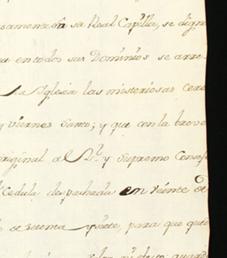 samente en su Real Capilla, se dign
en todos sus Dominios se arre
la Iglesia las misteriosas Cere
y viernes Santo; y que con la breve
original al R.l y Supremo Consej
Cedula despachada en veinte de
de setenta y siete, para que que